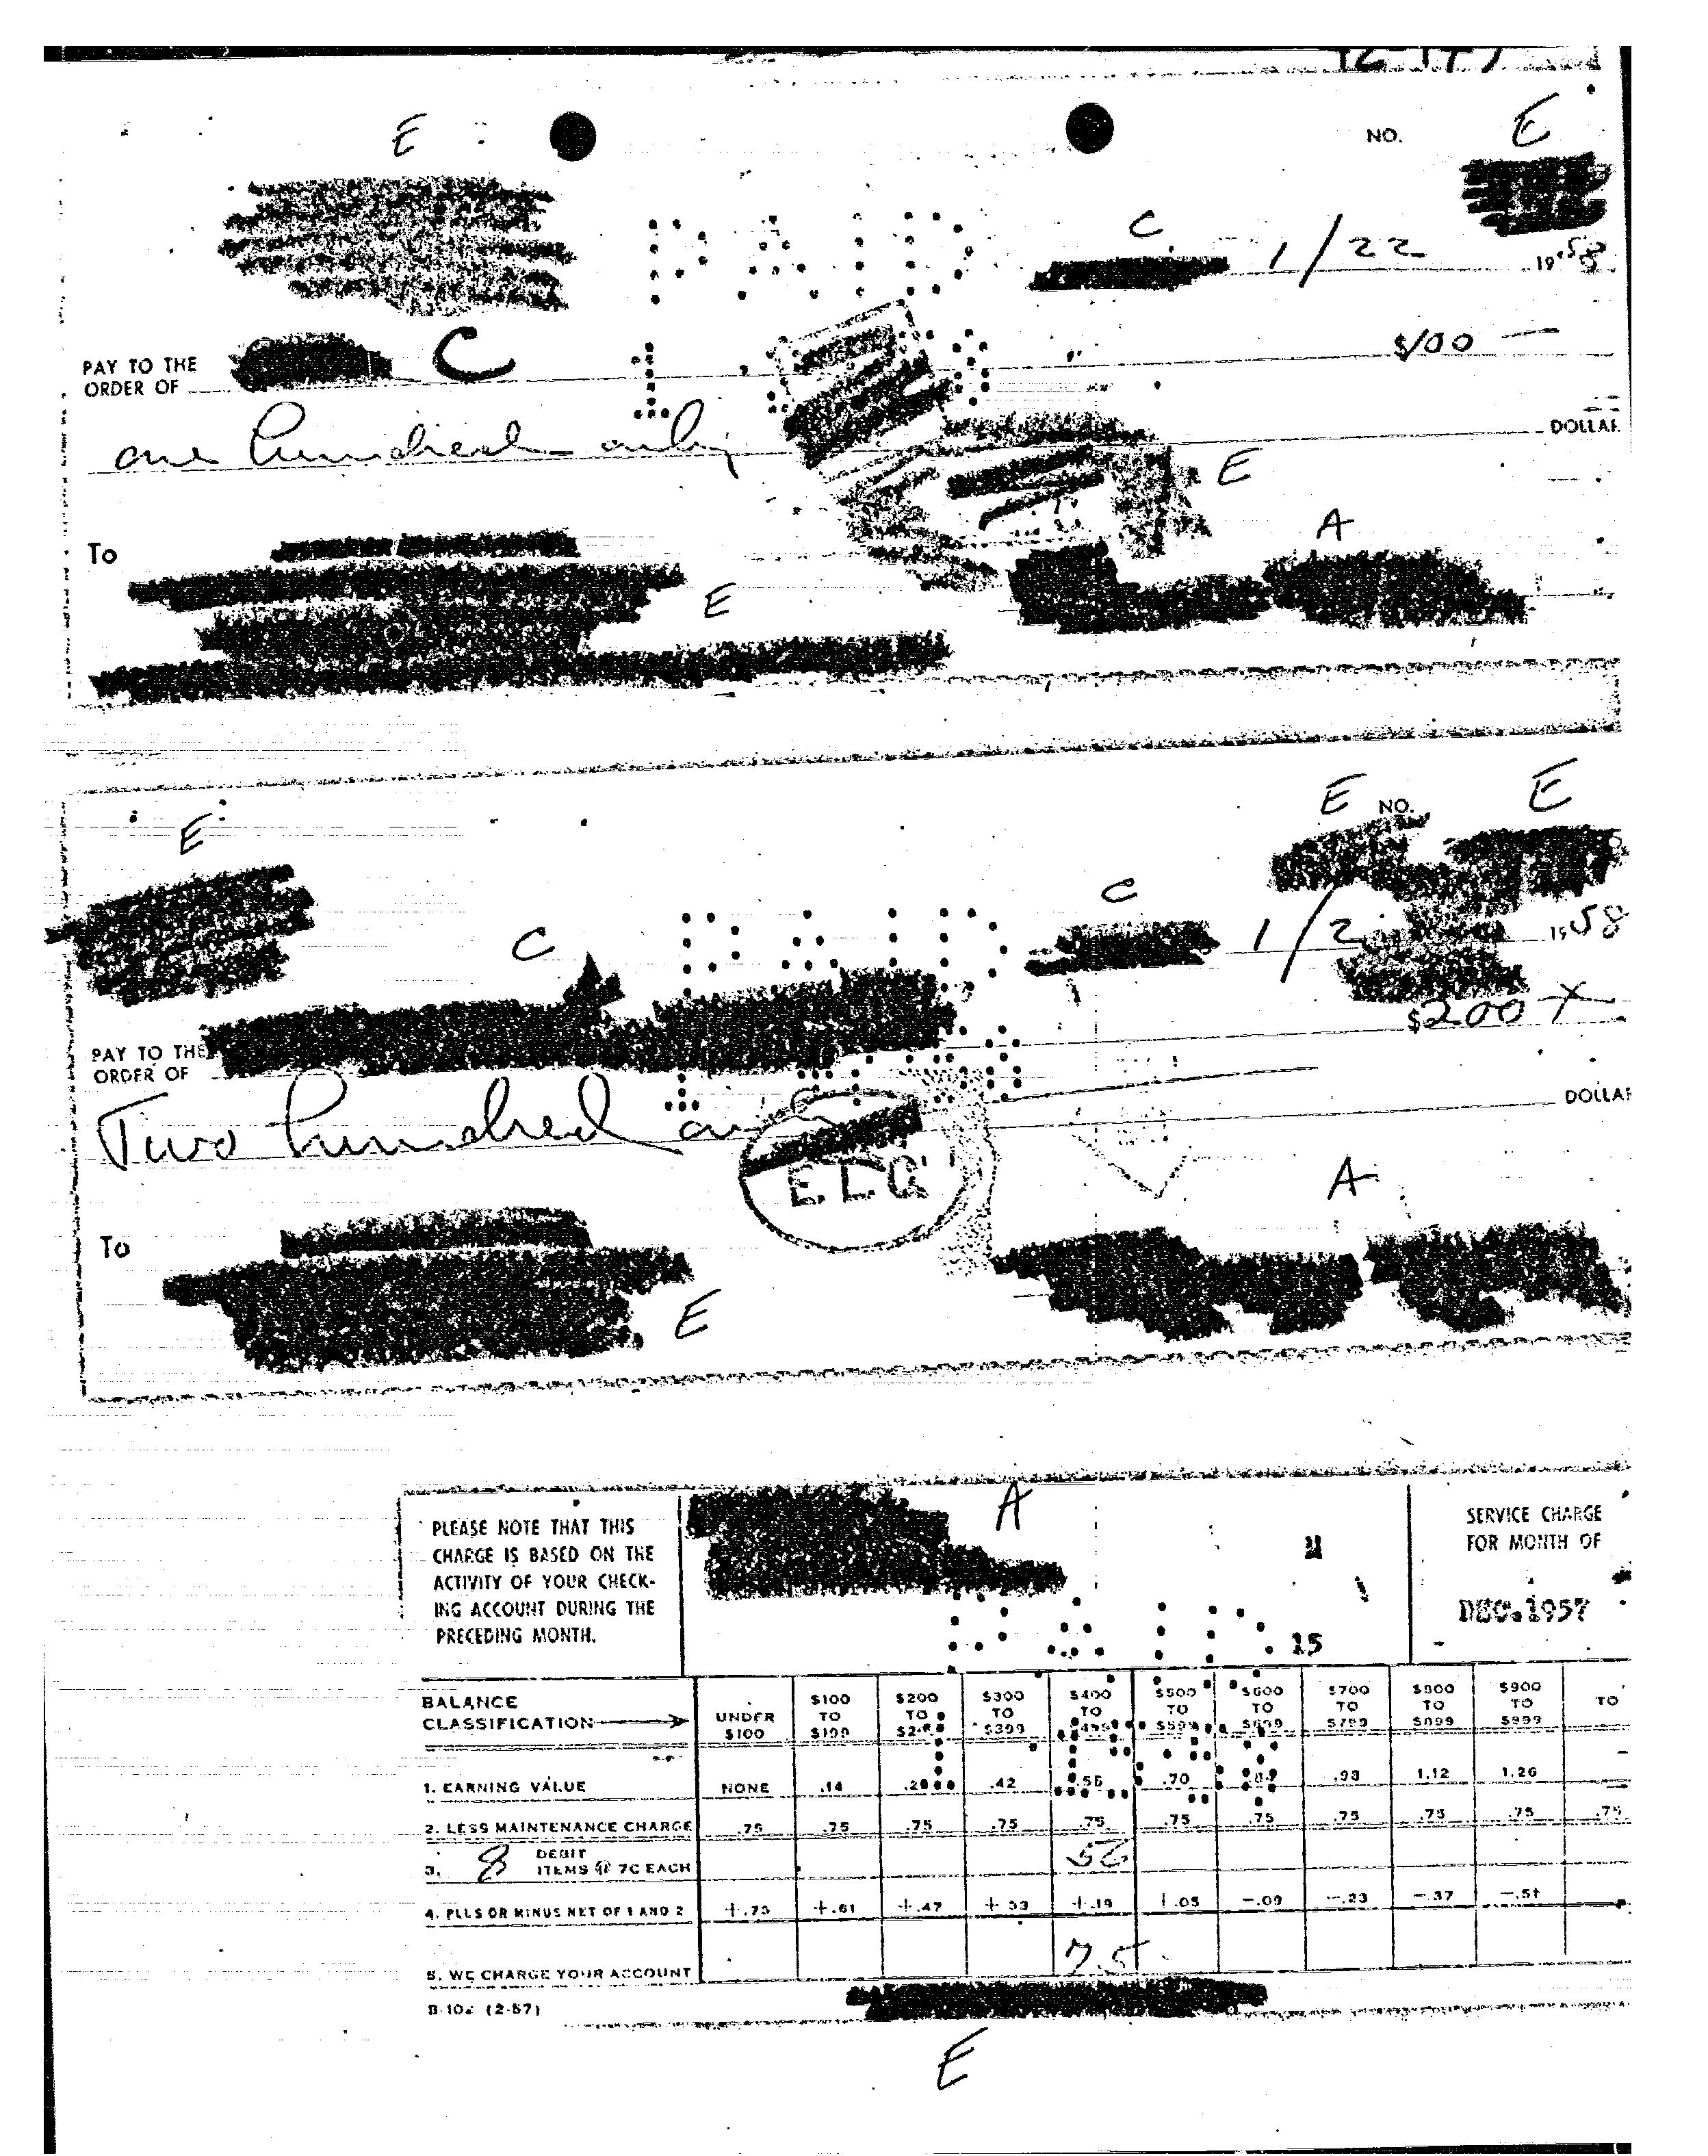 E
NO. E
PAID
C 1/22 1958
PAY TO THE
ORDER OF C $100 —
one hundred only DOLLAR
E
A
To
E
E NO. E
E
C
C
PAID
1/2 1958
$200 X
PAY TO THE
ORDER OF
Two hundred DOLLAR
E.L.G.
A
To
E
PLEASE NOTE THAT THIS
CHARGE IS BASED ON THE
ACTIVITY OF YOUR CHECK-
ING ACCOUNT DURING THE
PRECEDING MONTH.
A
15
SERVICE CHARGE
FOR MONTH OF
DEC.1957
BALANCE CLASSIFICATION UNDER $100 $100 TO $199 $200 TO $300 TO $399 $400 TO $499 $500 TO $599 $600 TO $699 $700 TO $799 $800 TO $899 $900 TO $999 TO
1. EARNING VALUE NONE .14 .28 .42 .56 .70 .93 1.12 1.26
2. LESS MAINTENANCE CHARGE .75 .75 .75 .75 .75 .75 .75 .75 .75 .75 .75
3. 8 DEBIT ITEMS @ 7C EACH 56
4. PLUS OR MINUS NET OF 1 AND 2 +.75 +.61 +.47 +.33 +.19 +.05 -.09 -.23 -.37 -.51
5. WE CHARGE YOUR ACCOUNT 75
B-10c (2-57)
E